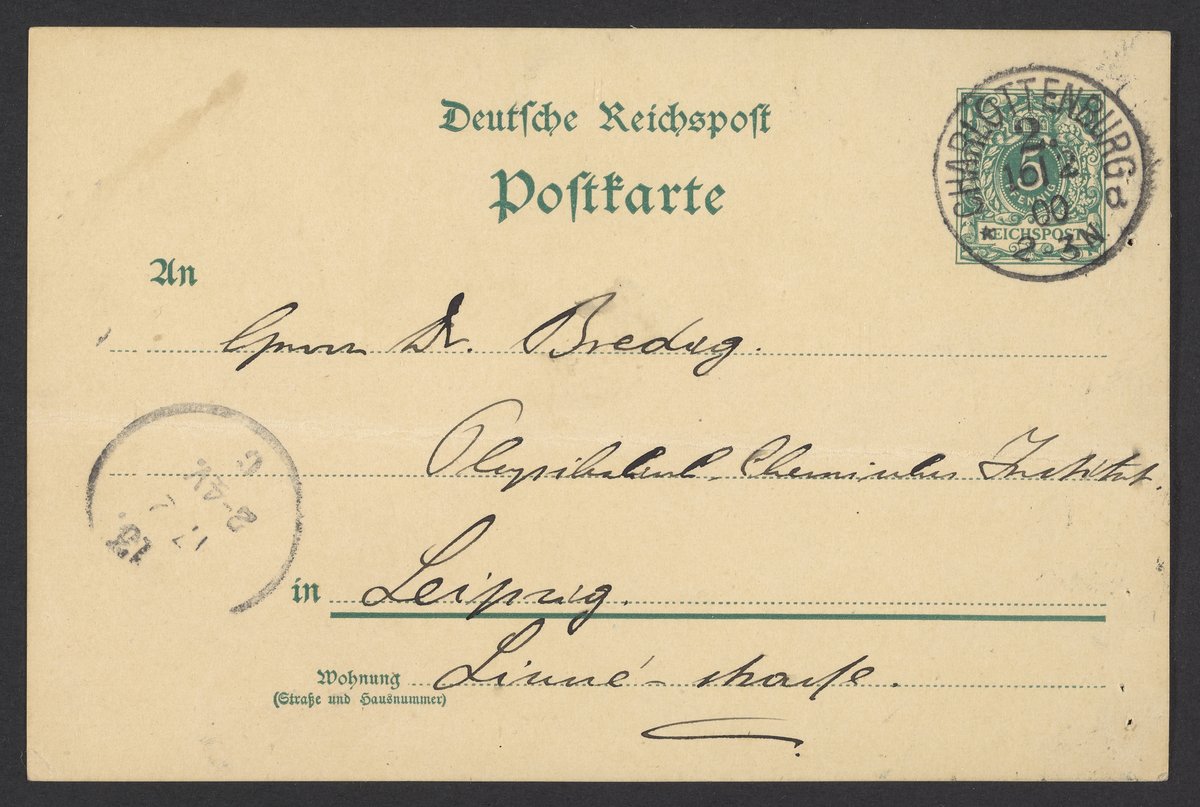 Deutsche Reichspost
Postkarte
CHARLOTTENBURG
2.
5
PFENNIG
00
REICHSPOST
* 2-3N
An
Herrn Dr. Bredig.
Physikalisch-Chemisches Institut.
2-4N.
in Leipzig.
Wohnung Linné-straße.
(Straße und Hausnummer)